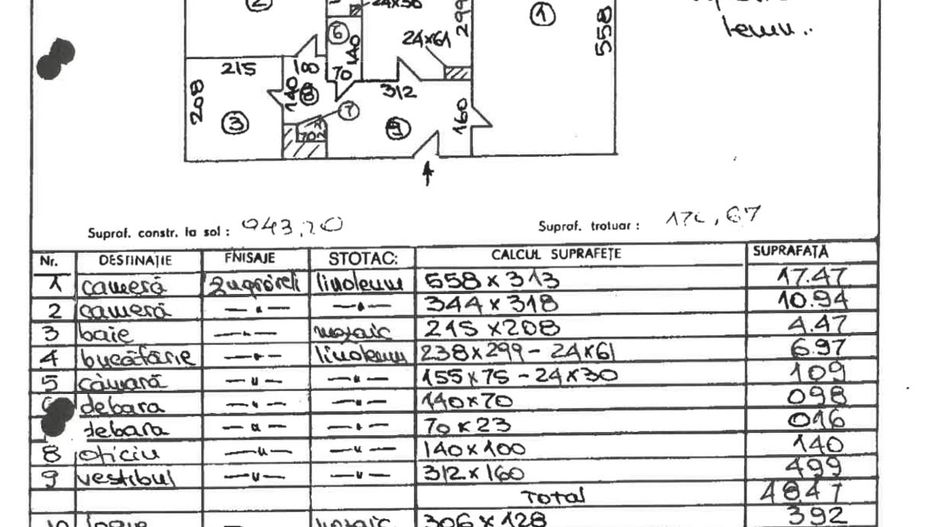 2
24×30
6
140
299
1
558
temu..
24×61
215
100
70
208
140
8
7
312
160
3
70
9
Supraf. constr. la sol : 943,20
Supraf. trotuar : 170,67
Nr. DESTINAȚIE FNISAJE STOTAC: CALCUL SUPRAFEȚE SUPRAFAȚĂ
1 cameră zugrăveli linoleum 558 × 313 17.47
2 cameră —"— —"— 344 × 318 10.94
3 baie —"— mozaic 215 × 208 4.47
4 bucătărie —"— linoleum 238 × 299 - 24×61 6.97
5 cămară —"— —"— 155 × 75 - 24×30 109
6 debara —"— —"— 140 × 70 098
debara —"— —"— 70 × 23 016
8 oficiu —"— —"— 140 × 100 140
9 vestibul —"— —"— 312 × 160 499
Total 4847
10 logie — mozaic 306 × 128 392